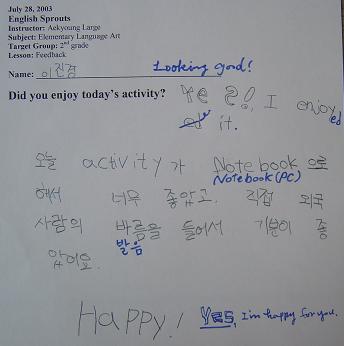 July 28, 2003
English Sprouts
Instructor: Aekyoung Large
Subject: Elementary Language Art
Target Group: 2nd grade
Lesson: Feedback
Looking good!
Name: 이진경
Did you enjoy today's activity? Yes!, I enjoyed
it.
오늘 activity가 Notebook으로
Notebook(PC)
해서 너무 좋았고. 직접 외국
사람의 바름을 들어서 기분이 좋
발음
았어요.
HAPPY! Yes, I'm happy for you.